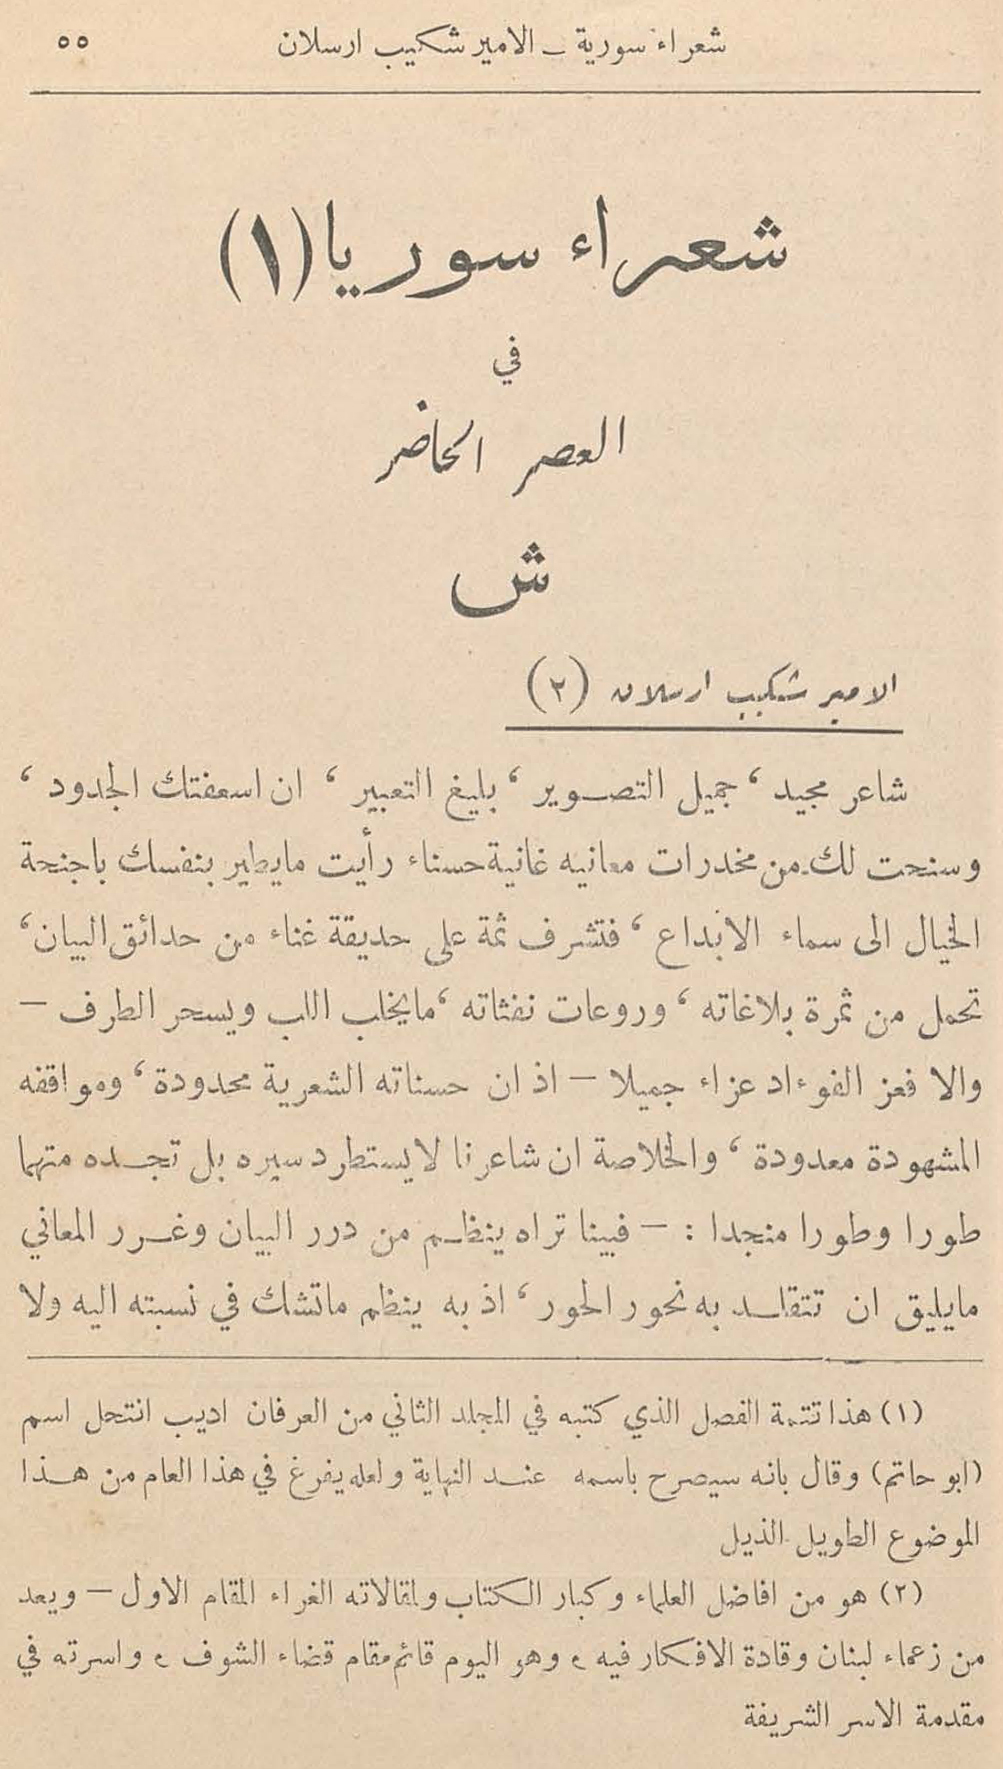 شعراء سورية ــ الامير شكيب ارسلان ٥٥
شعراء سوريا (١)
في
العصر الحاضر
ش
الامير شكيب ارسلان (٢)
شاعر مجيد ، جميل التصوير ، بليغ التعبير ، ان اسعفتك الجدود ،
وسنحت لك من مخدرات معانيه غانية حسناء رأيت مايطير بنفسك باجنحة
الخيال الى سماء الابداع ، فتشرف ثمة على حديقة غناء من حدائق البيان ،
تحمل من ثمرة بلاغاته ، وروعات نفثاته ، مايخلب اللب ويسحر الطرف —
والا فعز الفوءاد عزاء جميلا — اذ ان حسناته الشعرية محدودة ، ومواقفه
المشهودة معدودة ، والخلاصة ان شاعرنا لايستطرد سيره بل تجده متهما
طورا وطورا منجدا : — فبينا تراه ينظم من درر البيان وغرر المعاني
مايليق ان تتقلد به نحور الحور ، اذ به ينظم ماتشك في نسبته اليه ولا
(١) هذا تتمة الفصل الذي كتبه في المجلد الثاني من العرفان اديب انتحل اسم
(ابو حاتم) وقال بانه سيصرح باسمه عند النهاية ولعله يفرغ في هذا العام من هذا
الموضوع الطويل الذيل
(٢) هو من افاضل العلماء وكبار الكتاب ولمقالاته الغراء المقام الاول — ويعد
من زعماء لبنان وقادة الافكار فيه ، وهو اليوم قائم مقام قضاء الشوف ، واسرته في
مقدمة الاسر الشريفة